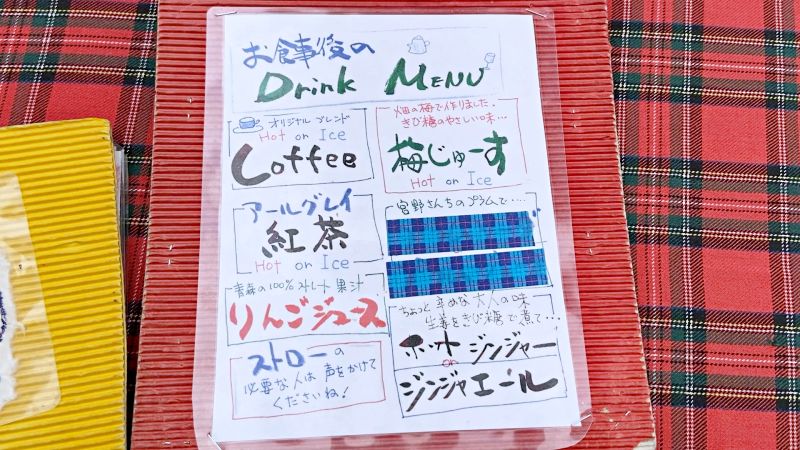 お食事後の
Drink MENU
オリジナル ブレンド
Hot or Ice
Coffee
畑の梅で作りました。
きび糖のやさしい味…
梅じゅーす
Hot or Ice
アールグレイ
紅茶
Hot or Ice
宮野さんちのプラムで…
青森の100%ストレート果汁
りんごジュース
ちょっと辛めな大人の味
生姜をきび糖で煮て…
ホットジンジャー
or
ジンジャエール
ストローの
必要な人は声をかけて
くださいね!